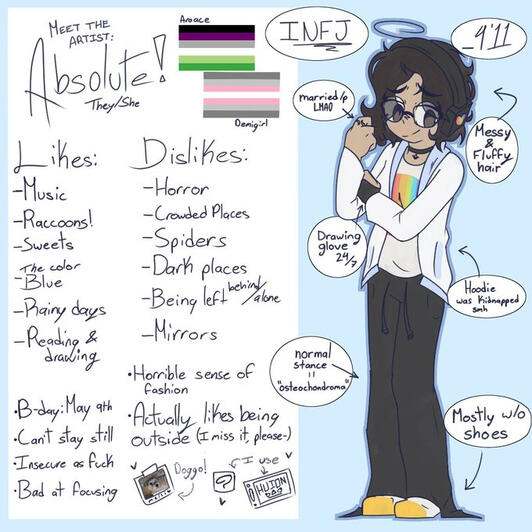 MEET THE
ARTIST:
Absolute!
They/She
Aroace
Demigirl
INFJ
_4'11
married/p
LMAO
Messy
&
Fluffy
hair
Drawing
glove
24/7
Hoodie
was kidnapped
smh
normal
stance
=
"osteochondroma"
Mostly w/o
shoes
Likes:
-Music
-Raccoons!
-Sweets
-The color
Blue
-Rainy days
-Reading &
drawing
Dislikes:
-Horror
-Crowded Places
-Spiders
-Dark places
-Being left behind/
alone
-Mirrors
•B-day: May 9th
•Can't stay still
•Insecure as fuck
•Bad at focusing
•Horrible sense of
fashion
•Actually likes being
outside (I miss it, please-)
Doggo!
?
I use
HUION